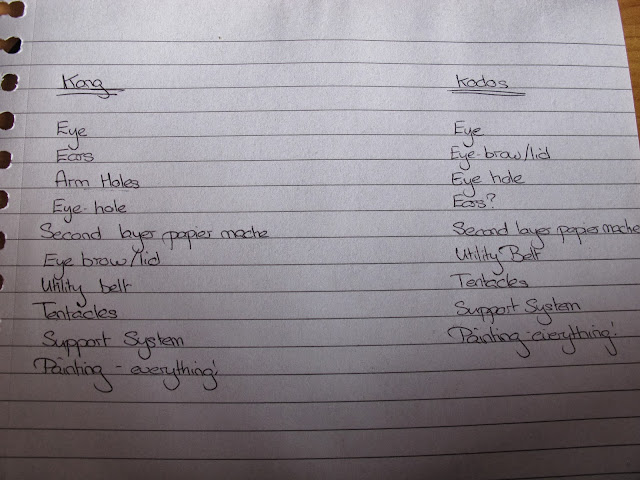 Kang
Eye
Ears
Arm Holes
Eye-hole
Second layer papier mache
Eye brow/lid
Utility belt
Tentacles
Support System
Painting - everything!
Kodos
Eye
Eye-brow/lid
Eye hole
Ears?
Second layer papier mache
Utility Belt
Tentacles
Support System
Painting - everything!